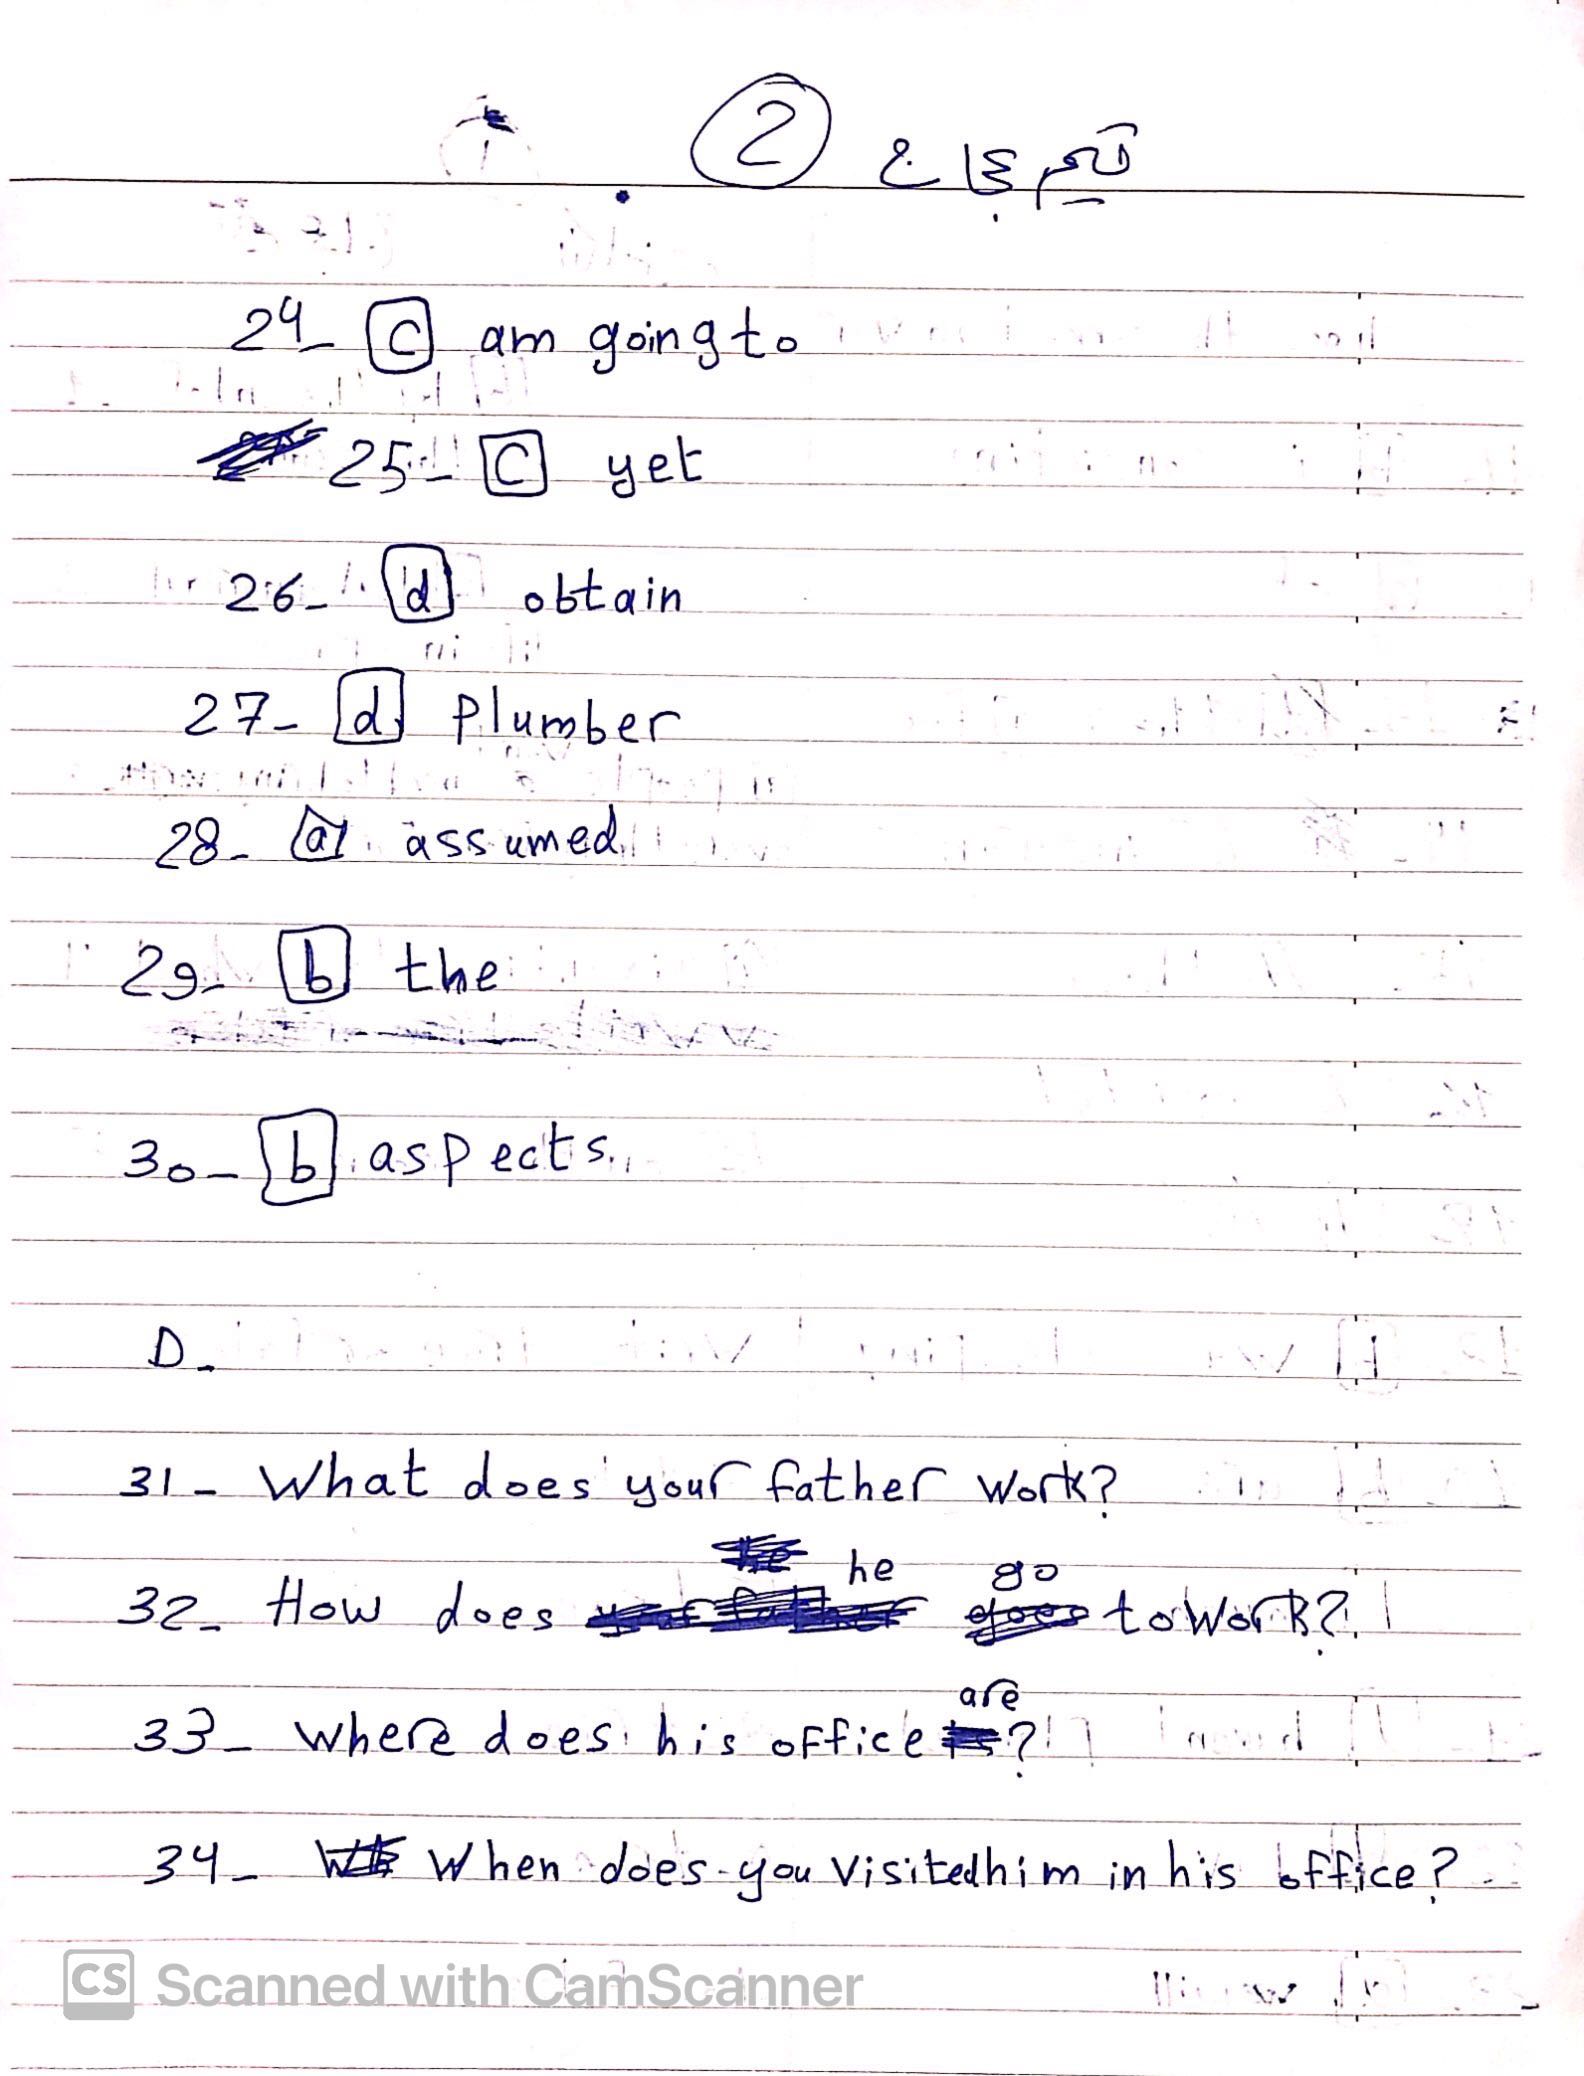 2
24- c am going to
25- c yet
26- d obtain
27- d Plumber
28- a assumed
29- b the
30- b aspects.
D-
31- What does your father work?
32- How does he go to work?
33- where does his office are?
34- When does you visited him in his office?
CS Scanned with CamScanner